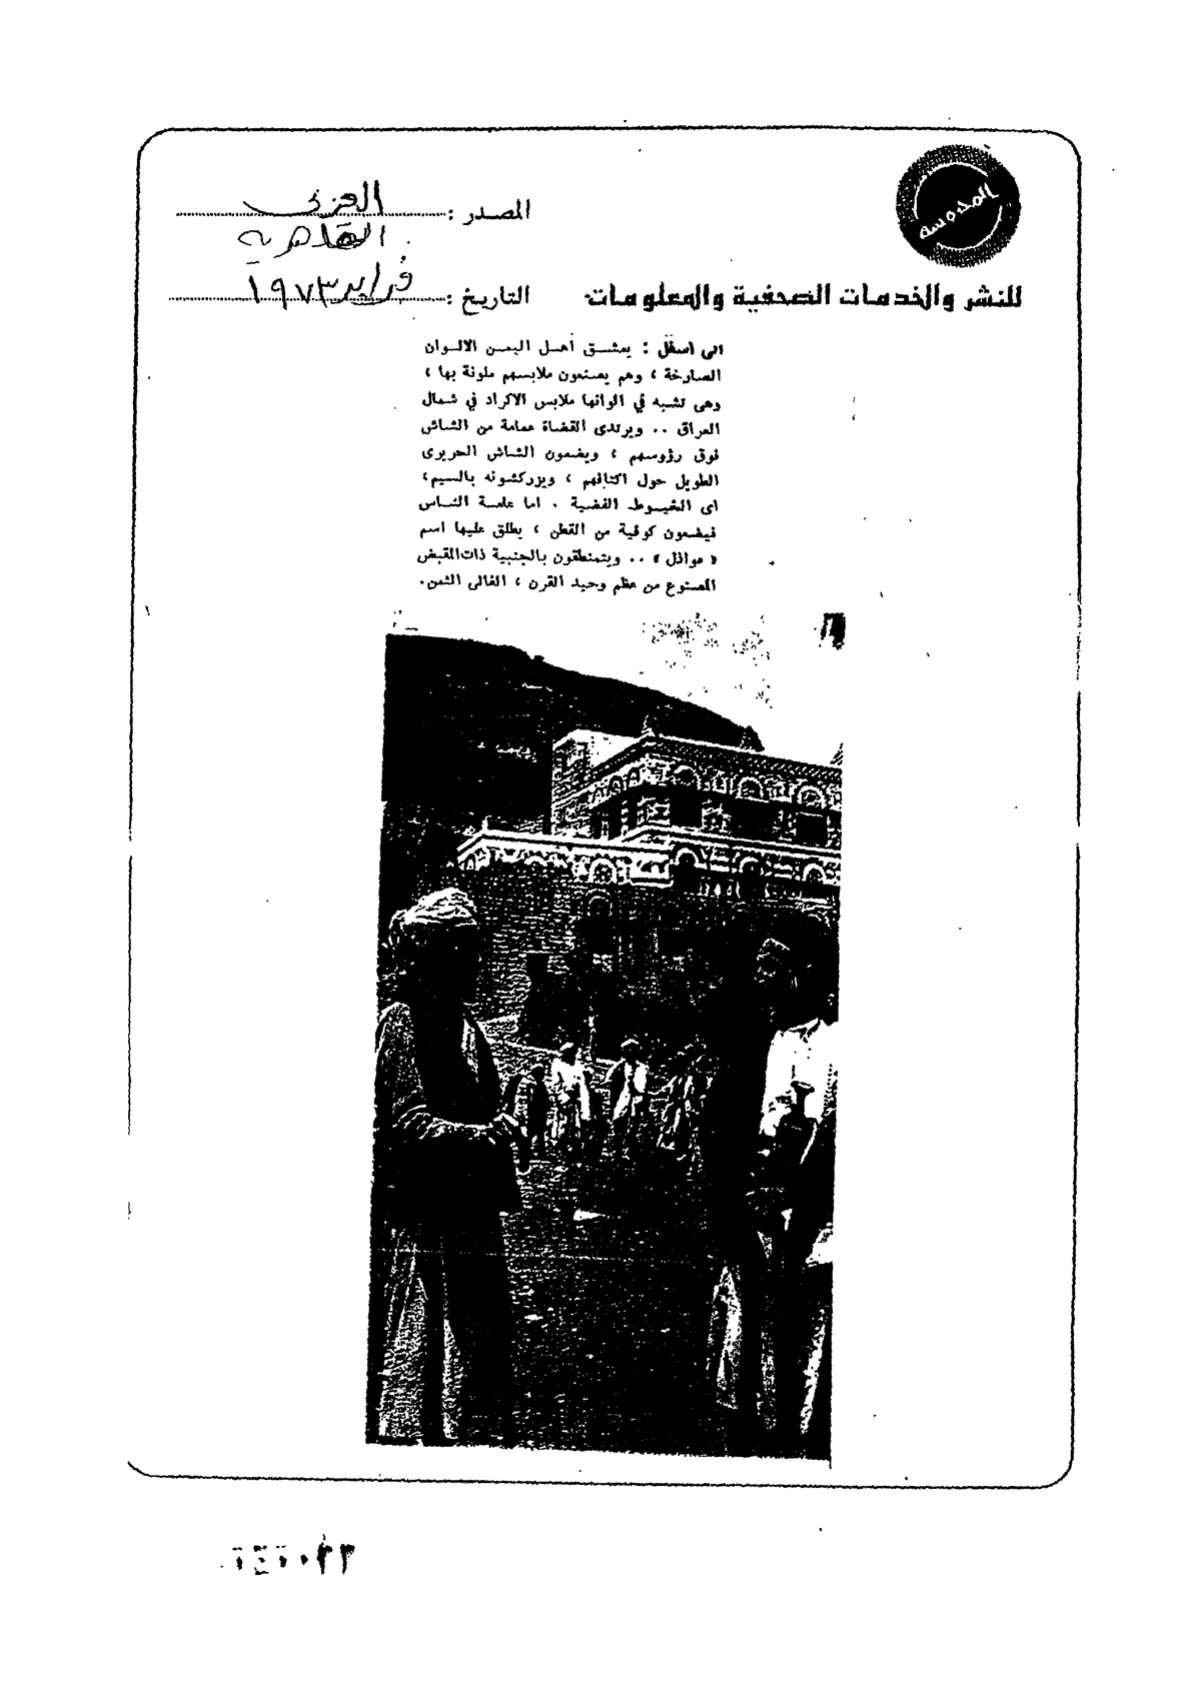 المحروسة
للنشر والخدمات الصحفية والمعلومات
المصدر : العربى
القاهرية
التاريخ : فبراير ١٩٧٣
الى أسفل : يعشق أهل اليمن الالوان
الصارخة ، وهم يصنعون ملابسهم ملونة بها ،
وهى تشبه في الوانها ملابس الاكراد في شمال
العراق .. ويرتدى القضاة عمامة من الشاش
فوق رؤوسهم ، ويضعون الشاش الحريرى
الطويل حول اكتافهم ، ويزركشونه بالسيم،
اى الخيوط الفضية . اما عامة الناس
فيضعون كوفية من القطن ، يطلق عليها اسم
« عوائل » .. ويتمنطقون بالجنبية ذات المقبض
المصنوع من عظم وحيد القرن ، الغالى الثمن.